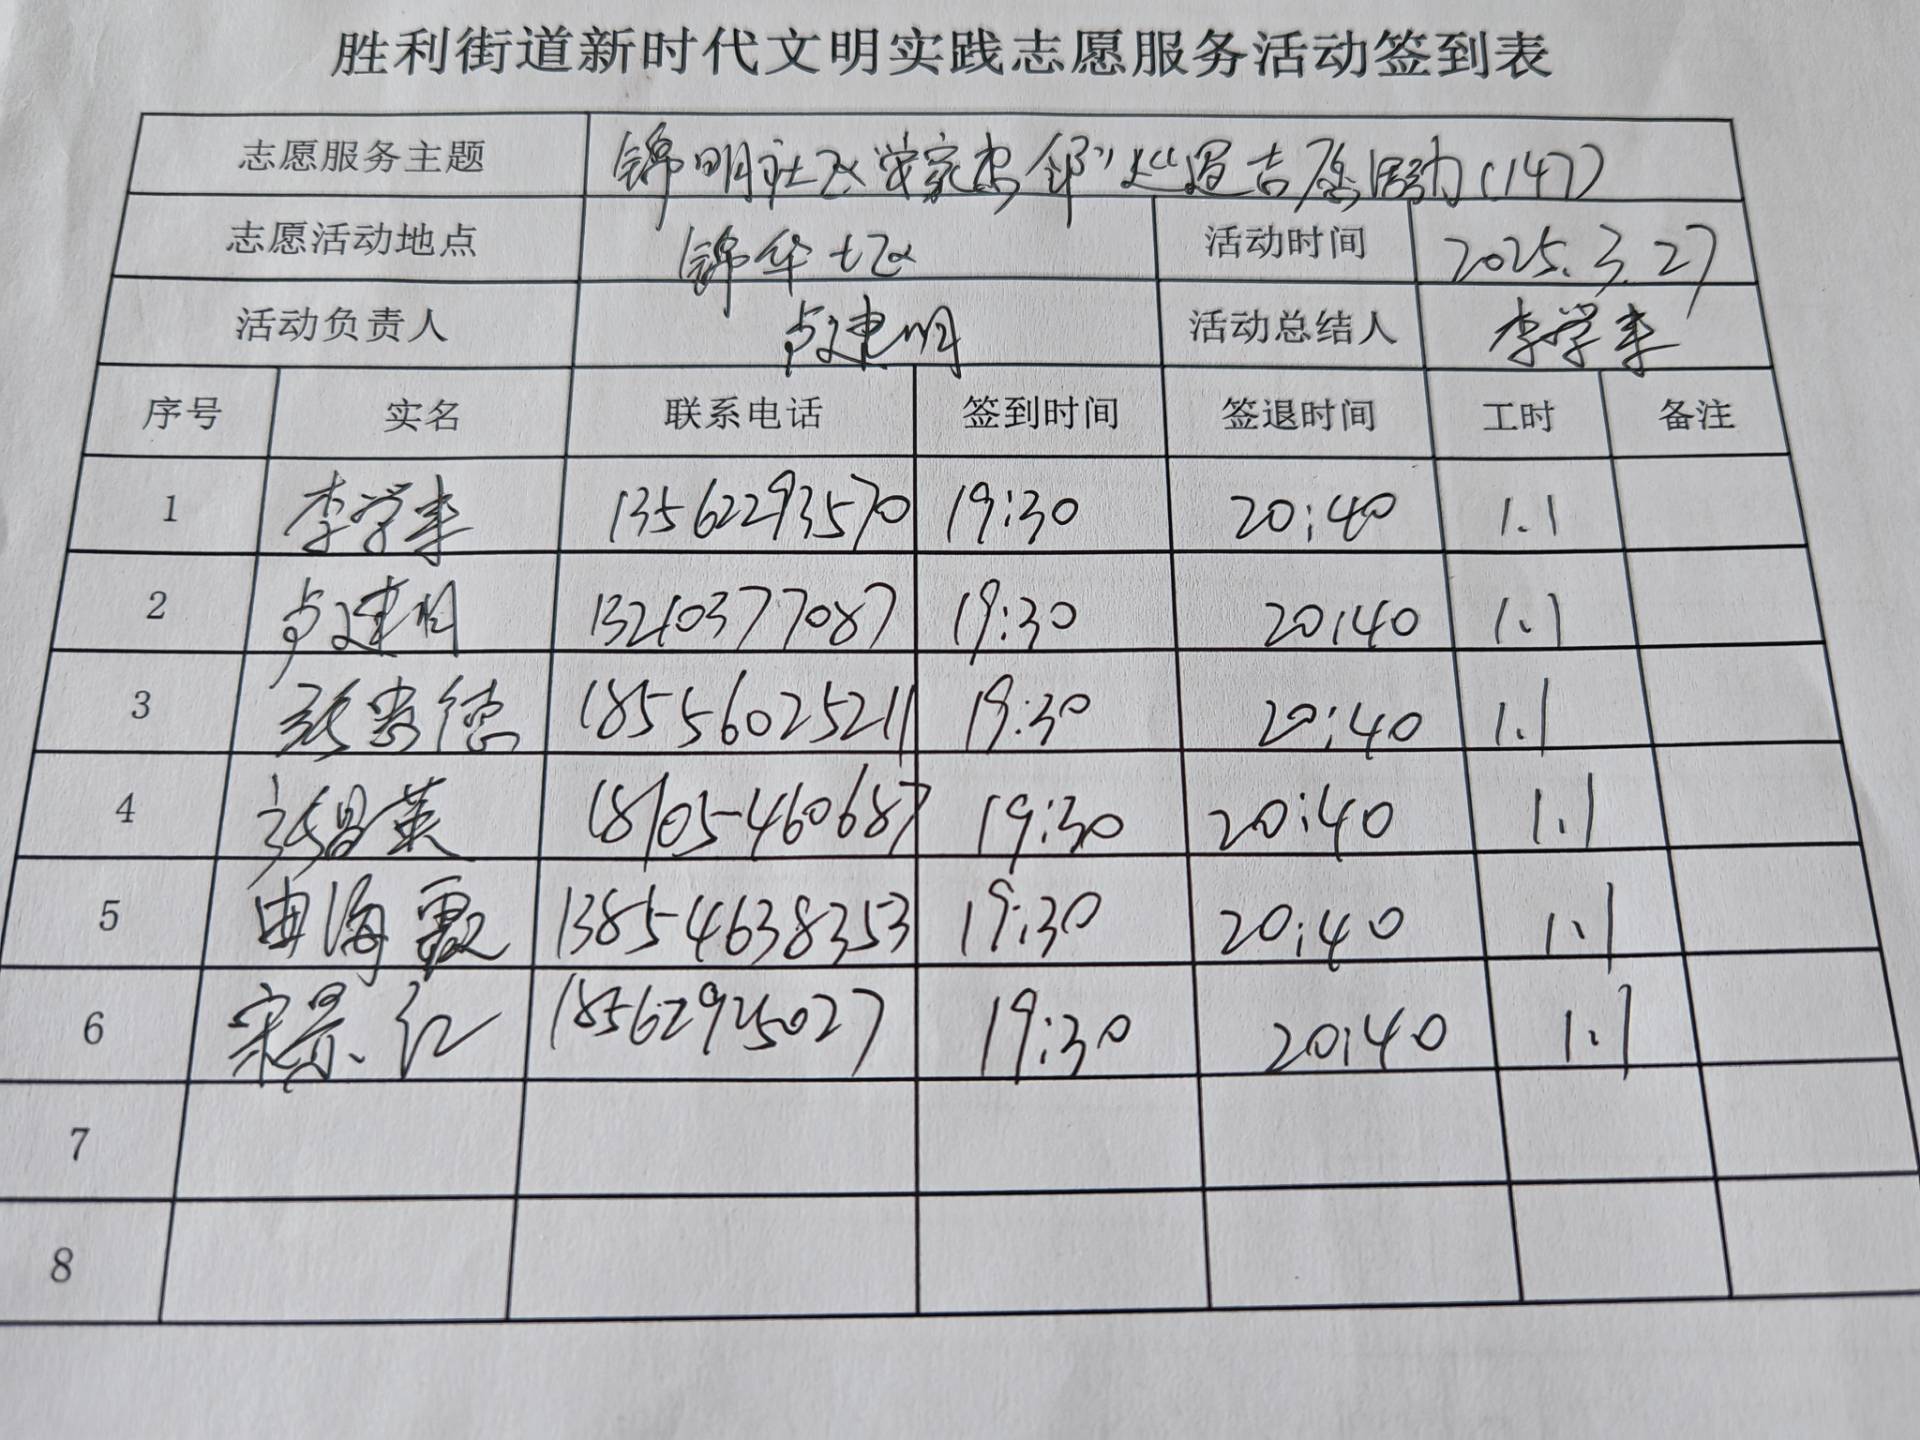 胜利街道新时代文明实践志愿服务活动签到表
志愿服务主题 锦明社区 巡逻志愿活动(147)
志愿活动地点 锦华七区 活动时间 2025.3.27
活动负责人 卢建明 活动总结人 李学来
序号 实名 联系电话 签到时间 签退时间 工时 备注
1 李学来 13562293570 19:30 20:40 1.1
2 卢建明 13210377087 19:30 20:40 1.1
3 18556025211 19:30 20:40 1.1
4 张昌英 18105460687 19:30 20:40 1.1
5 曲海霞 13854638353 19:30 20:40 1.1
6 宋景红 18562925027 19:30 20:40 1.1
7
8